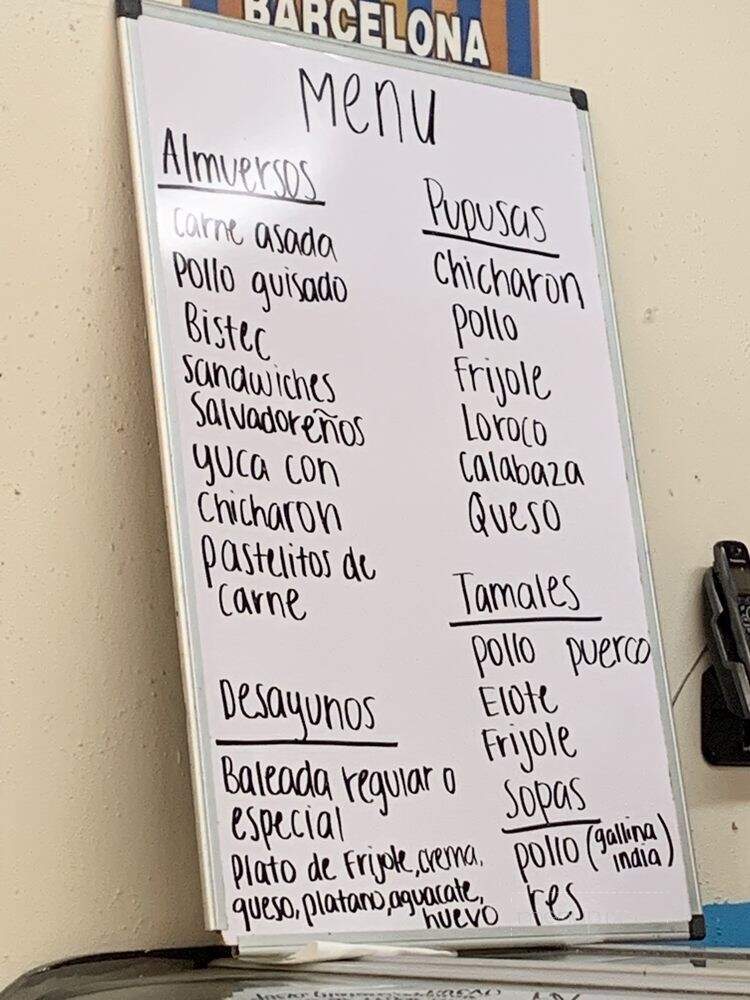 BARCELONA
Menu
Almuersos
Carne asada
Pollo guisado
Bistec
Sandwiches
Salvadoreños
yuca con
Chicharon
Pastelitos de
Carne
Desayunos
Baleada regular o
especial
Plato de Frijole, crema,
queso, platano, aguacate,
huevo
Pupusas
Chicharon
Pollo
Frijole
Loroco
Calabaza
Queso
Tamales
Pollo puerco
Elote
Frijole
Sopas
Pollo (gallina
india)
res